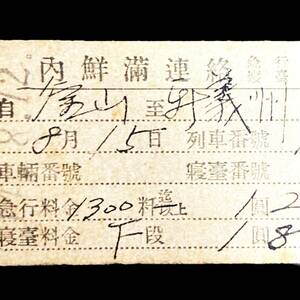 內鮮滿連絡 急行
寢臺
自 釜山 至 新義州
8月15日 列車番號
車輛番號 寢臺番號
急行料金 1300粁迄以上 1圓2
寢臺料金 下段 1圓8